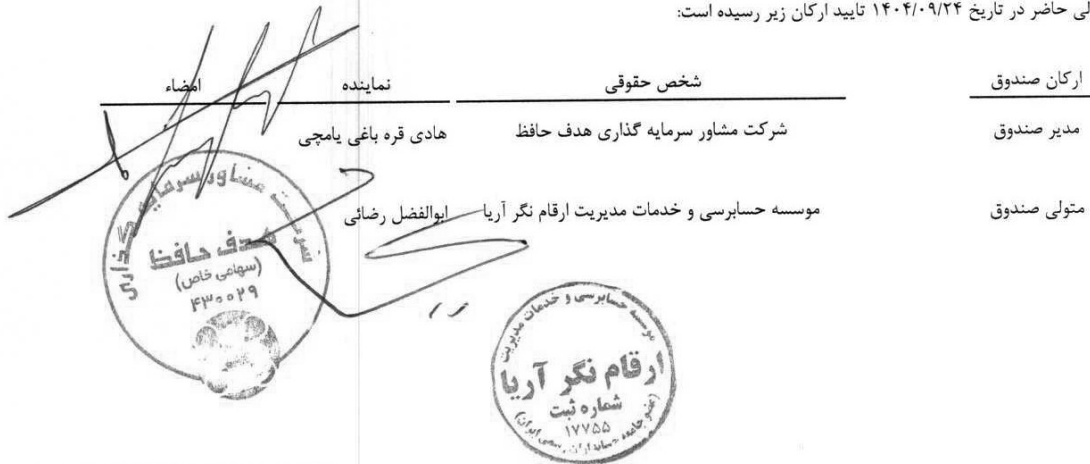 لی حاضر در تاریخ ۱۴۰۴/۰۹/۲۴ تایید ارکان زیر رسیده است:
ارکان صندوق شخص حقوقی نماینده امضاء
مدیر صندوق شرکت مشاور سرمایه گذاری هدف حافظ هادی قره باغی یامچی
متولی صندوق موسسه حسابرسی و خدمات مدیریت ارقام نگر آریا ابوالفضل رضائی
شرکت مشاور سرمایه گذاری
هدف حافظ
(سهامی خاص)
۴۳۰۰۲۹
موسسه حسابرسی و خدمات مدیریت
ارقام نگر آریا
شماره ثبت
۱۷۷۵۵
(عضو جامعه حسابداران رسمی ایران)